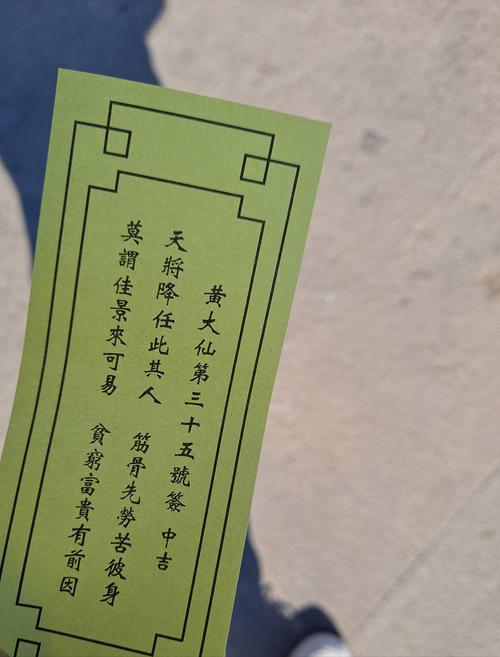 黃大仙第三十五號簽 中吉
天將降任此其人 筋骨先勞苦彼身
莫謂佳景來可易 貧窮富貴有前因